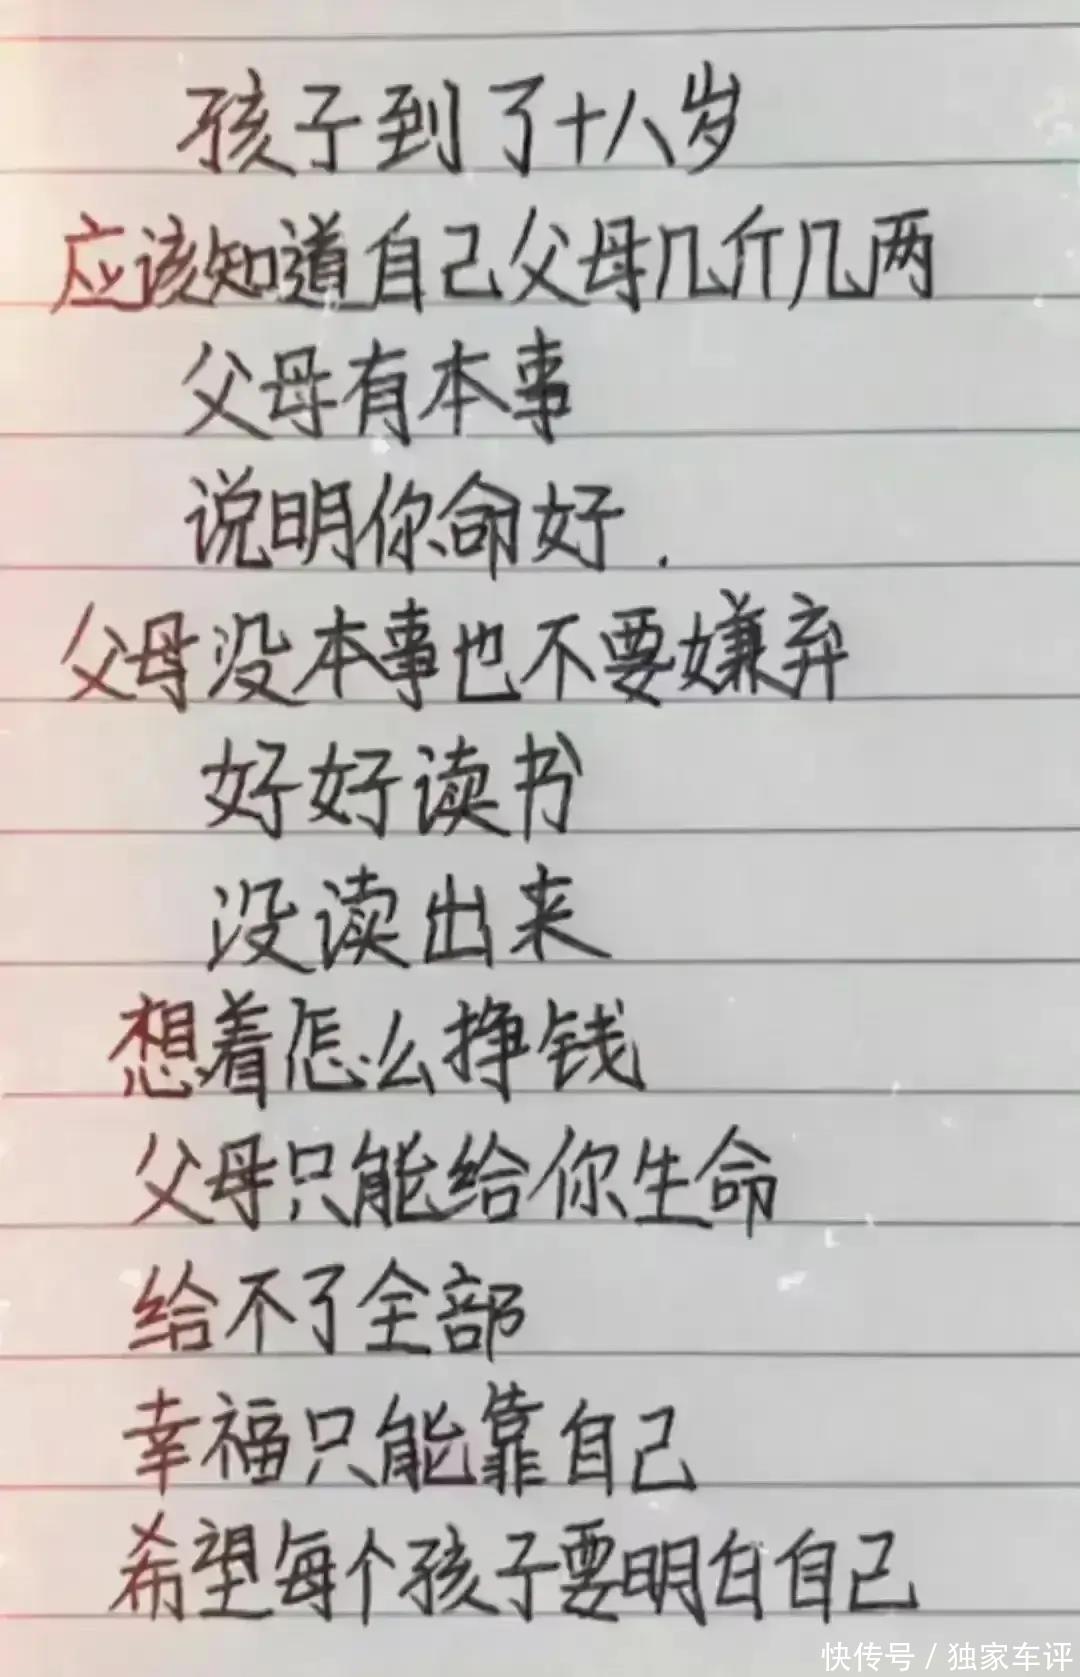 孩子到了十八岁
应该知道自己父母几斤几两
父母有本事
说明你命好.
父母没本事也不要嫌弃
好好读书
没读出来
想着怎么挣钱
父母只能给你生命
给不了全部
幸福只能靠自己
希望每个孩子要明白自己
快传号/独家车评